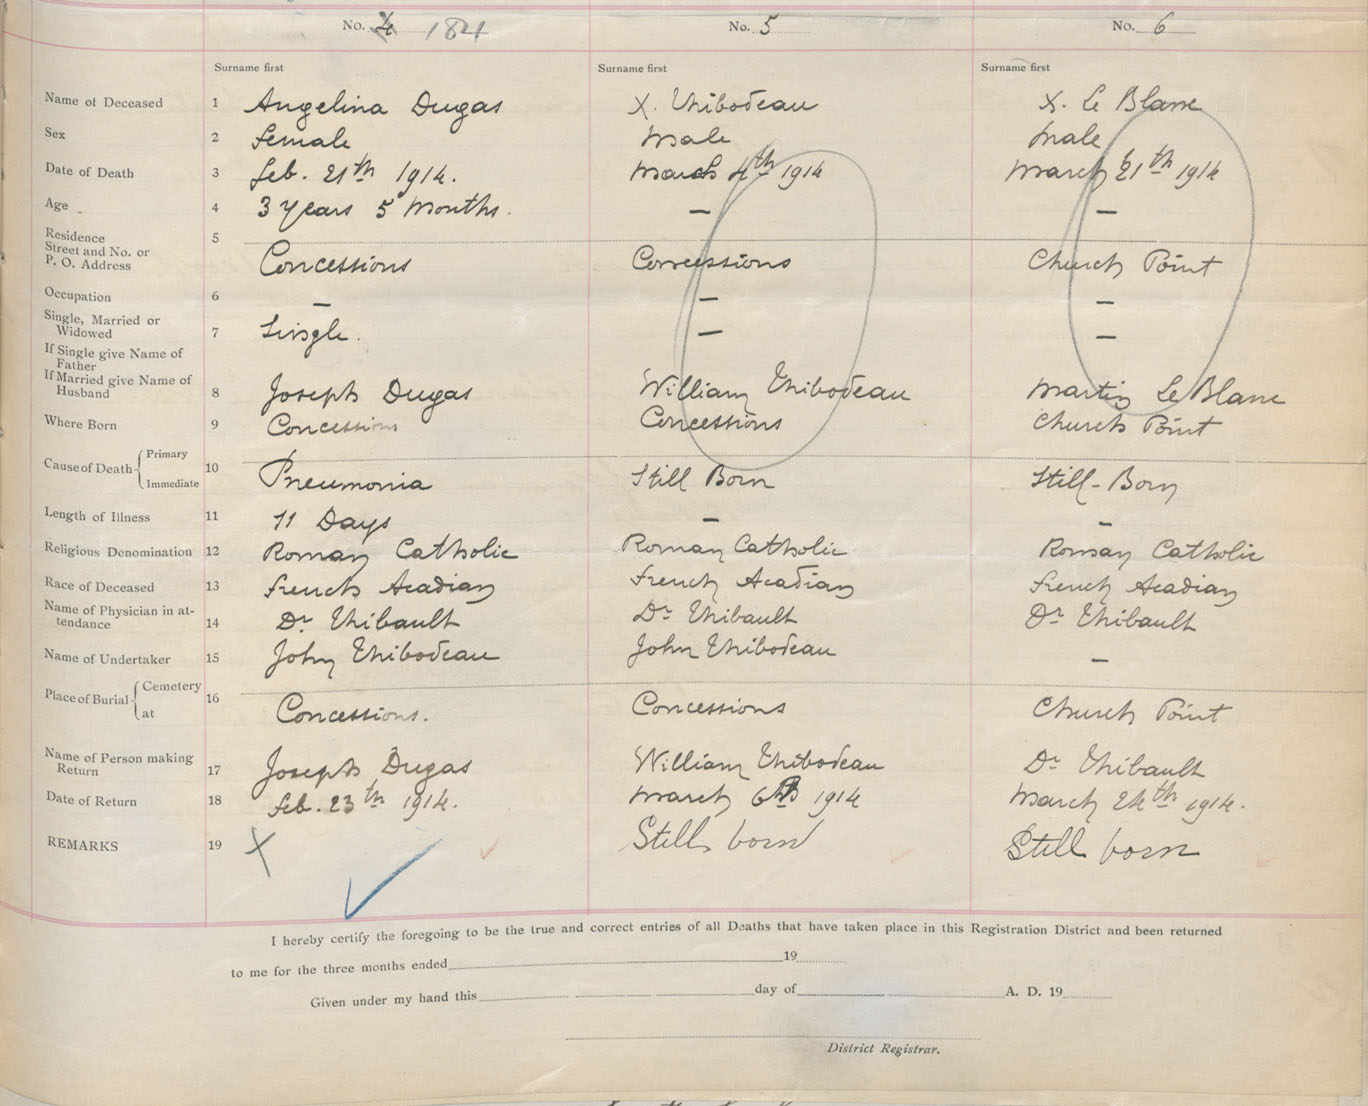 No. 4 181 No. 5 No. 6
Surname first Surname first Surname first
Name of Deceased 1 Angelina Dugas X. Thibodeau X. Le Blanc
Sex 2 Female Male Male
Date of Death 3 Feb. 21th 1914. March 4th 1914 March 21th 1914
Age 4 3 Years 5 Months. — —
Residence 5
Street and No. or
P. O. Address Concessions Concessions Church Point
Occupation 6 — — —
Single, Married or
Widowed 7 Single. — —
If Single give Name of
Father
If Married give Name of
Husband 8 Joseph Dugas William Thibodeau Martin Le Blanc
Where Born 9 Concessions Concessions Church Point
Cause of Death { Primary
Immediate 10 Pneumonia Still Born Still-Born
Length of Illness 11 11 Days — —
Religious Denomination 12 Roman Catholic Roman Catholic Roman Catholic
Race of Deceased 13 French Acadian French Acadian French Acadian
Name of Physician in at-
tendance 14 Dr. Thibault Dr Thibault Dr Thibault
Name of Undertaker 15 John Thibodeau John Thibodeau —
Place of Burial { Cemetery 16
at Concessions. Concessions Church Point
Name of Person making
Return 17 Joseph Dugas William Thibodeau Dr Thibault
Date of Return 18 Feb. 23th 1914. March 6th 1914 March 24th 1914.
REMARKS 19 X Still born Still born
I hereby certify the foregoing to be the true and correct entries of all Deaths that have taken place in this Registration District and been returned
to me for the three months ended 19
Given under my hand this day of A. D. 19
District Registrar.